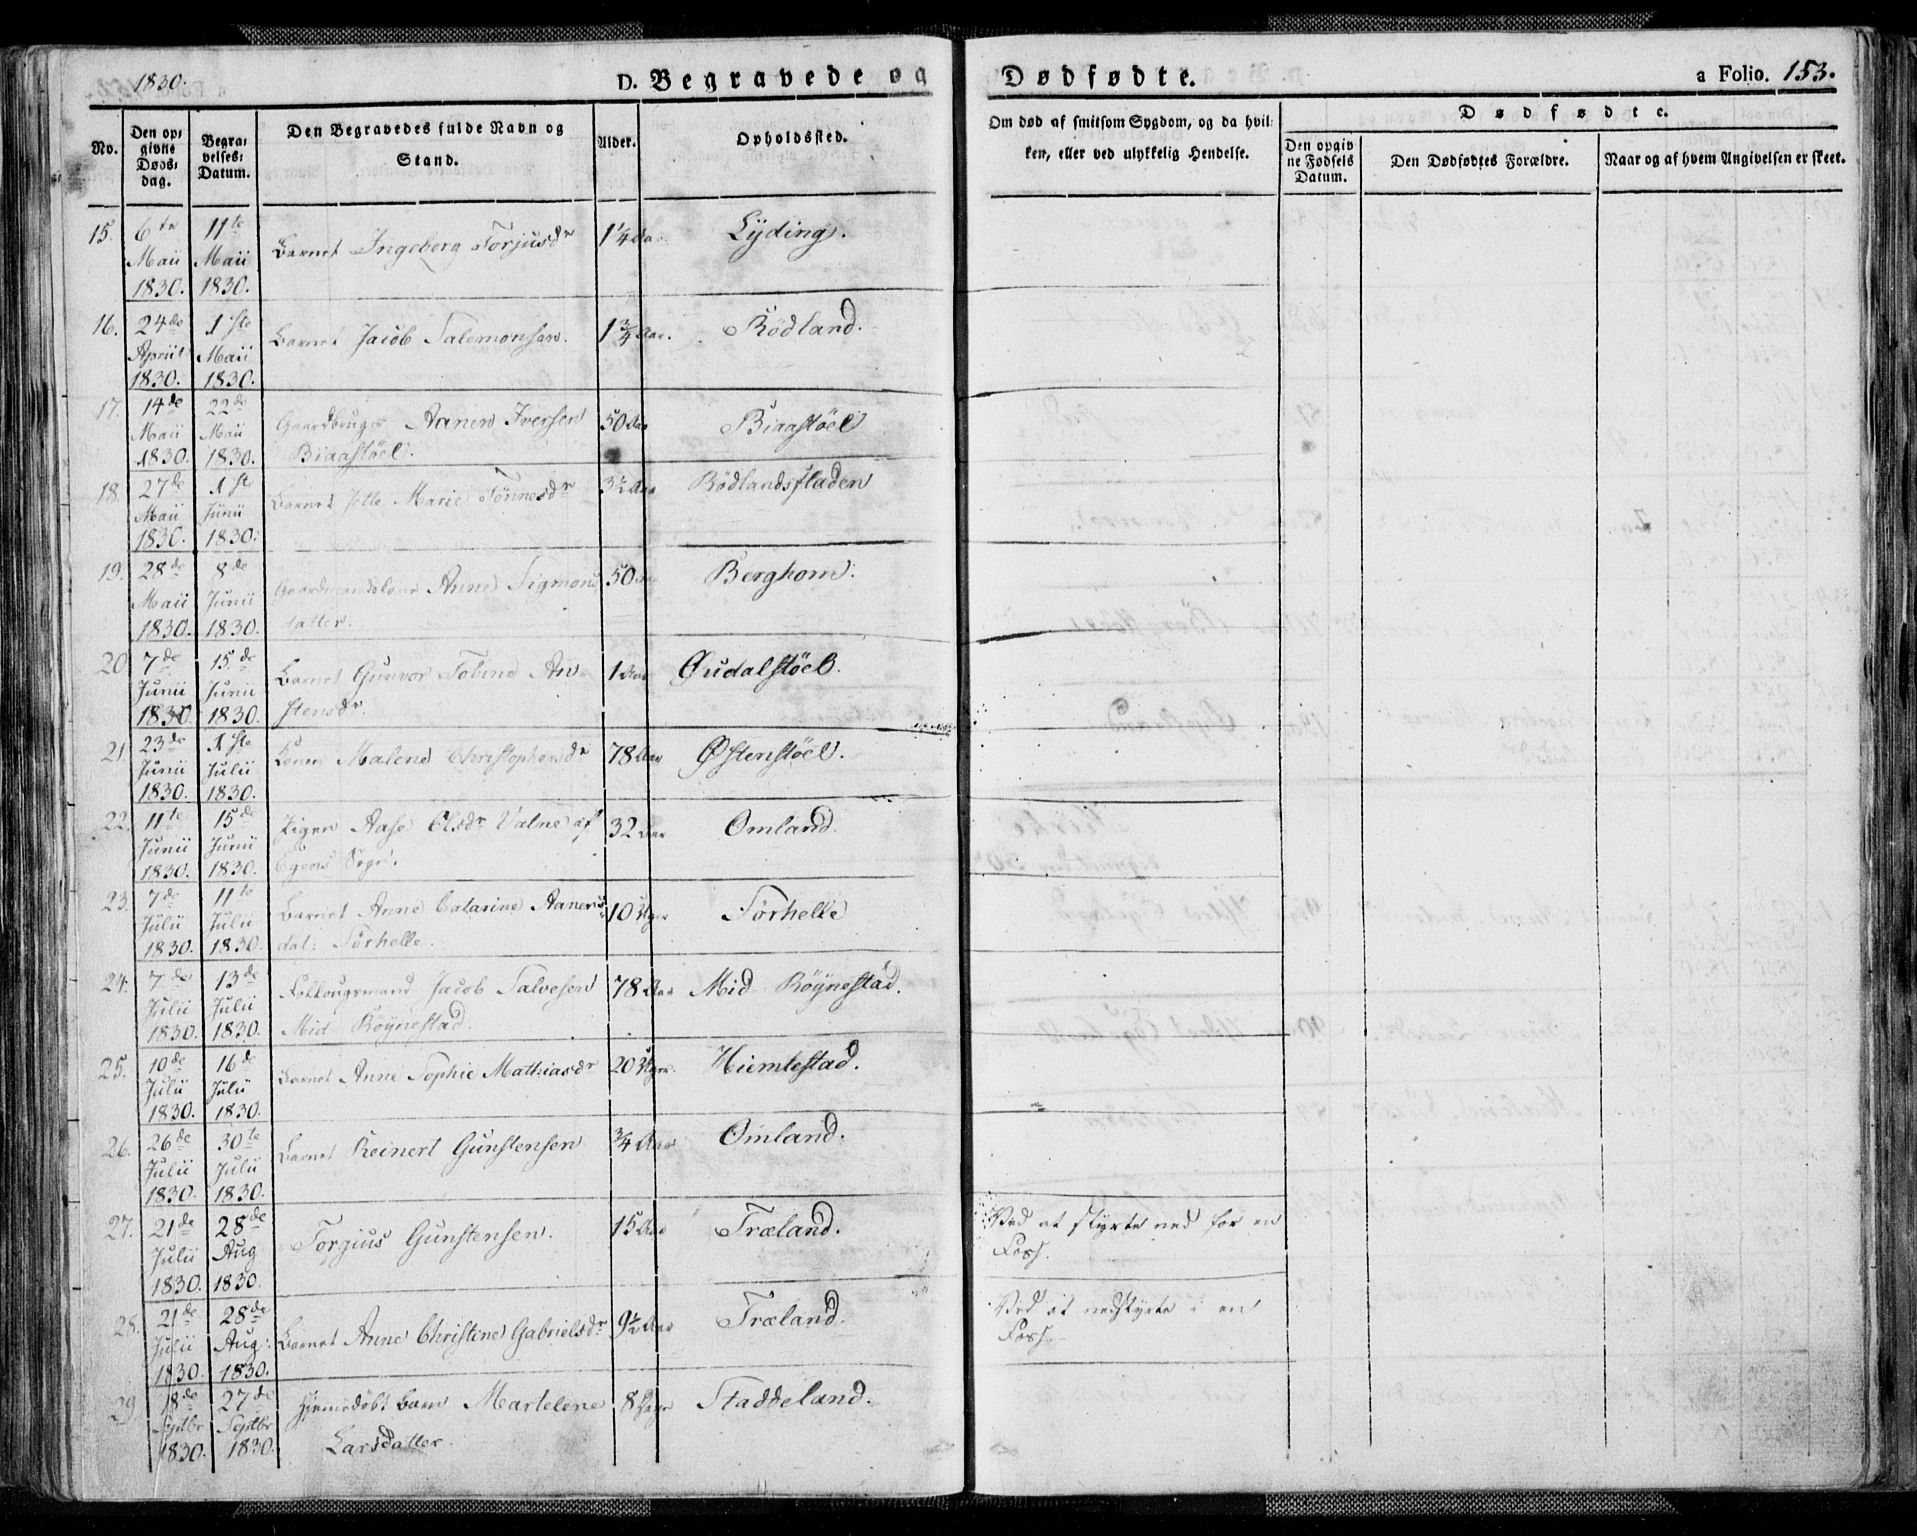 1830.
D. Begravede og Dødfødte.
a Folio. 153.
No.
Den op:
givne
Døds:
dag.
Begra:
velses:
Datum.
Den Begravedes fulde Navn og
Stand.
Alder.
Opholdssted.
Om død af smitsom Sygdom, og da hvil:
ken, eller ved ulykkelig Hendelse.
Dødfødte.
Den opgiv
ne Fødsels
Datum.
Den Dødfødtes Forældre.
Naar og af hvem Angivelsen er skeet.
15. 6te Maii 1830. 11te Maii 1830. Barnet Ingeborg Torjusdr 1¼ Aar. Lyding.
16. 24de April 1830. 1ste Maii 1830. Barnet Jacob Salemonsen. 1¾ Aar. Rödland.
17. 14de Maii 1830. 22de Maii 1830. Gaardbruger Aanen Iversen
Biaastöel. 50 Aar Biaastöel
18. 27de Maii 1830. 1ste Junii 1830. Barnet Jette Marie Tönnesdr 3½ Aar Rödlandsfladen
19. 28de Maii 1830. 8de Junii 1830. Gaardmandskone Anne Sigmons
datter. 50 Aar Berghom.
20. 7de Junii 1830. 15de Junii 1830. Barnet Gunvor Tobine An-
stensdr. 1 Aar Øudalstöel.
21. 23de Junii 1830. 1ste Julii 1830. Konen Malene Christophersdr 78 Aar Østenstöel.
22. 11te Junii 1830. 15de Junii 1830. Pigen Aase Olsdr Valne af
Egens Sogn. 32 Aar Omland
23. 7de Julii 1830. 11te Julii 1830. Barnet Anne Catarine Aanens
dat: Törhelle. 10 Uger Törhelle
24. 7de Julii 1830. 13de Julii 1830. Folkougsmand Jacob Salvesen
Mid Röynestad. 78 Aar Mid Röynestad.
25. 10de Julii 1830. 16de Julii 1830. Barnet Anne Sophie Mathiasdr 20 Uger. Hiemlestad.
26. 26de Julii 1830. 30te Julii 1830. Barnet Reinert Gunstensen ¾ Aar Omland.
27. 21de Julii 1830. 28de Aug 1830. Torgius Gunstensen. 15 Aar Træland. Ved at styrte ned for en
Foss.
28. 21de Julii 1830. 28de Aug: 1830. Barnet Anne Christine Gabrielsdr 9½ Aar Træland. Ved at nedstyrte i en
Foss.
29. 18de Septbr 1830. 27de Septbr 1830. Hjemedöbt Barn Martelene
Larsdatter. 8 Dage Staddeland.